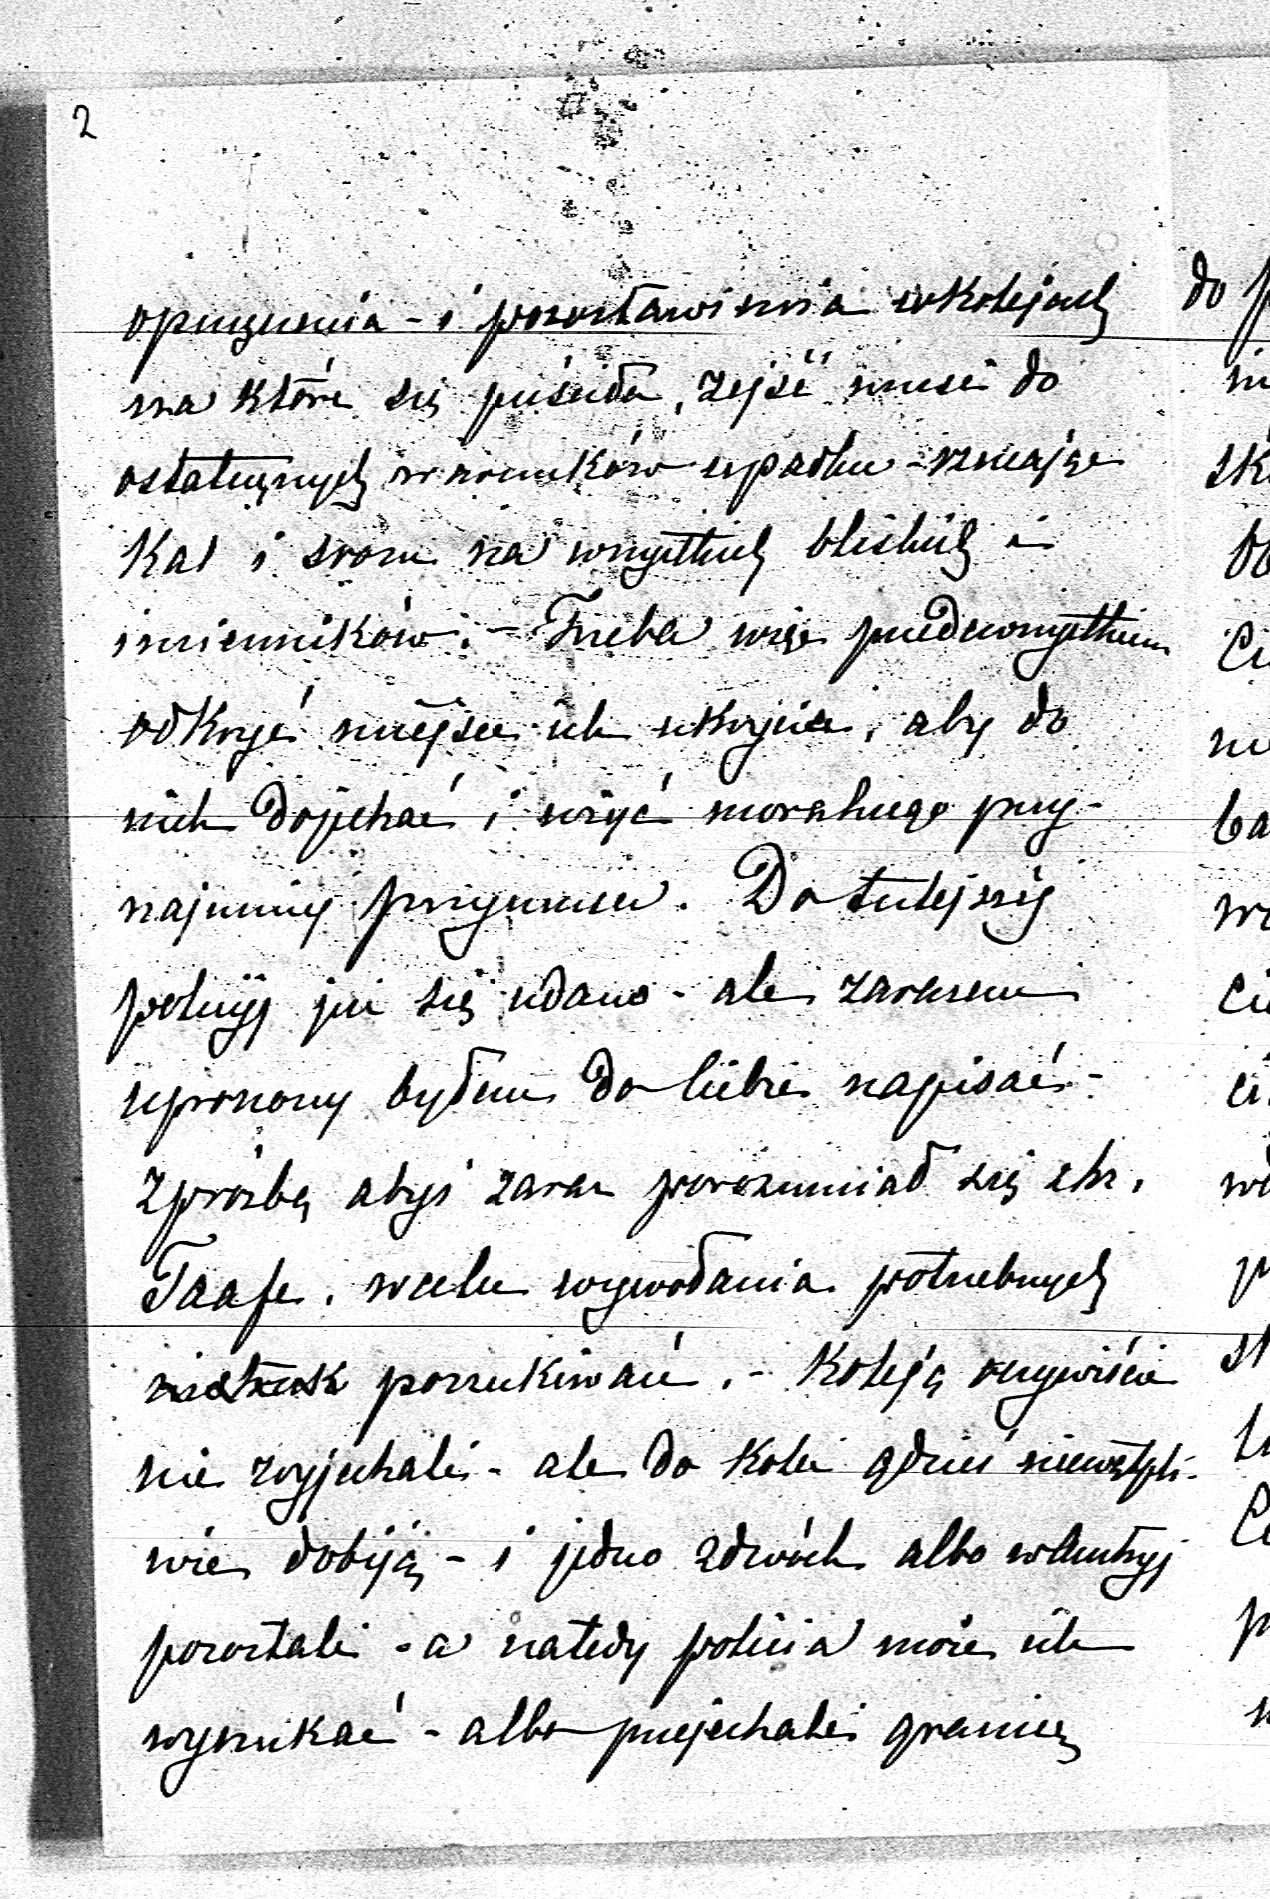 2
opuszczenia - i pozostawienia w kolejach
na które się puściła, zejść musi do
ostatecznych warunków upadku - rzucając
Kał i srom na wszystkich bliskich i
imienników. - Trzeba więc przedewszystkiem
odkryć miejsce ich ukrycia, aby do
nich dojechać i użyć moralnego przy-
najmniej przymusu. Do tutejszej
policyi już się udano - ale zarazem
uproszony byłem do Ciebie napisać -
z prośbą abyś zaraz porozumiał się z hr.
Taafe. w celu wywołania potrzebnych
poszukiwań. - Koleją oczywiście
nie wyjechali - ale do Kolei gdzieś niewątpli-
wie dobiją - i jedno z dwóch albo w Austryi
pozostali - a natedy policia może ich
wyszukać - albo przejechali granicę
do